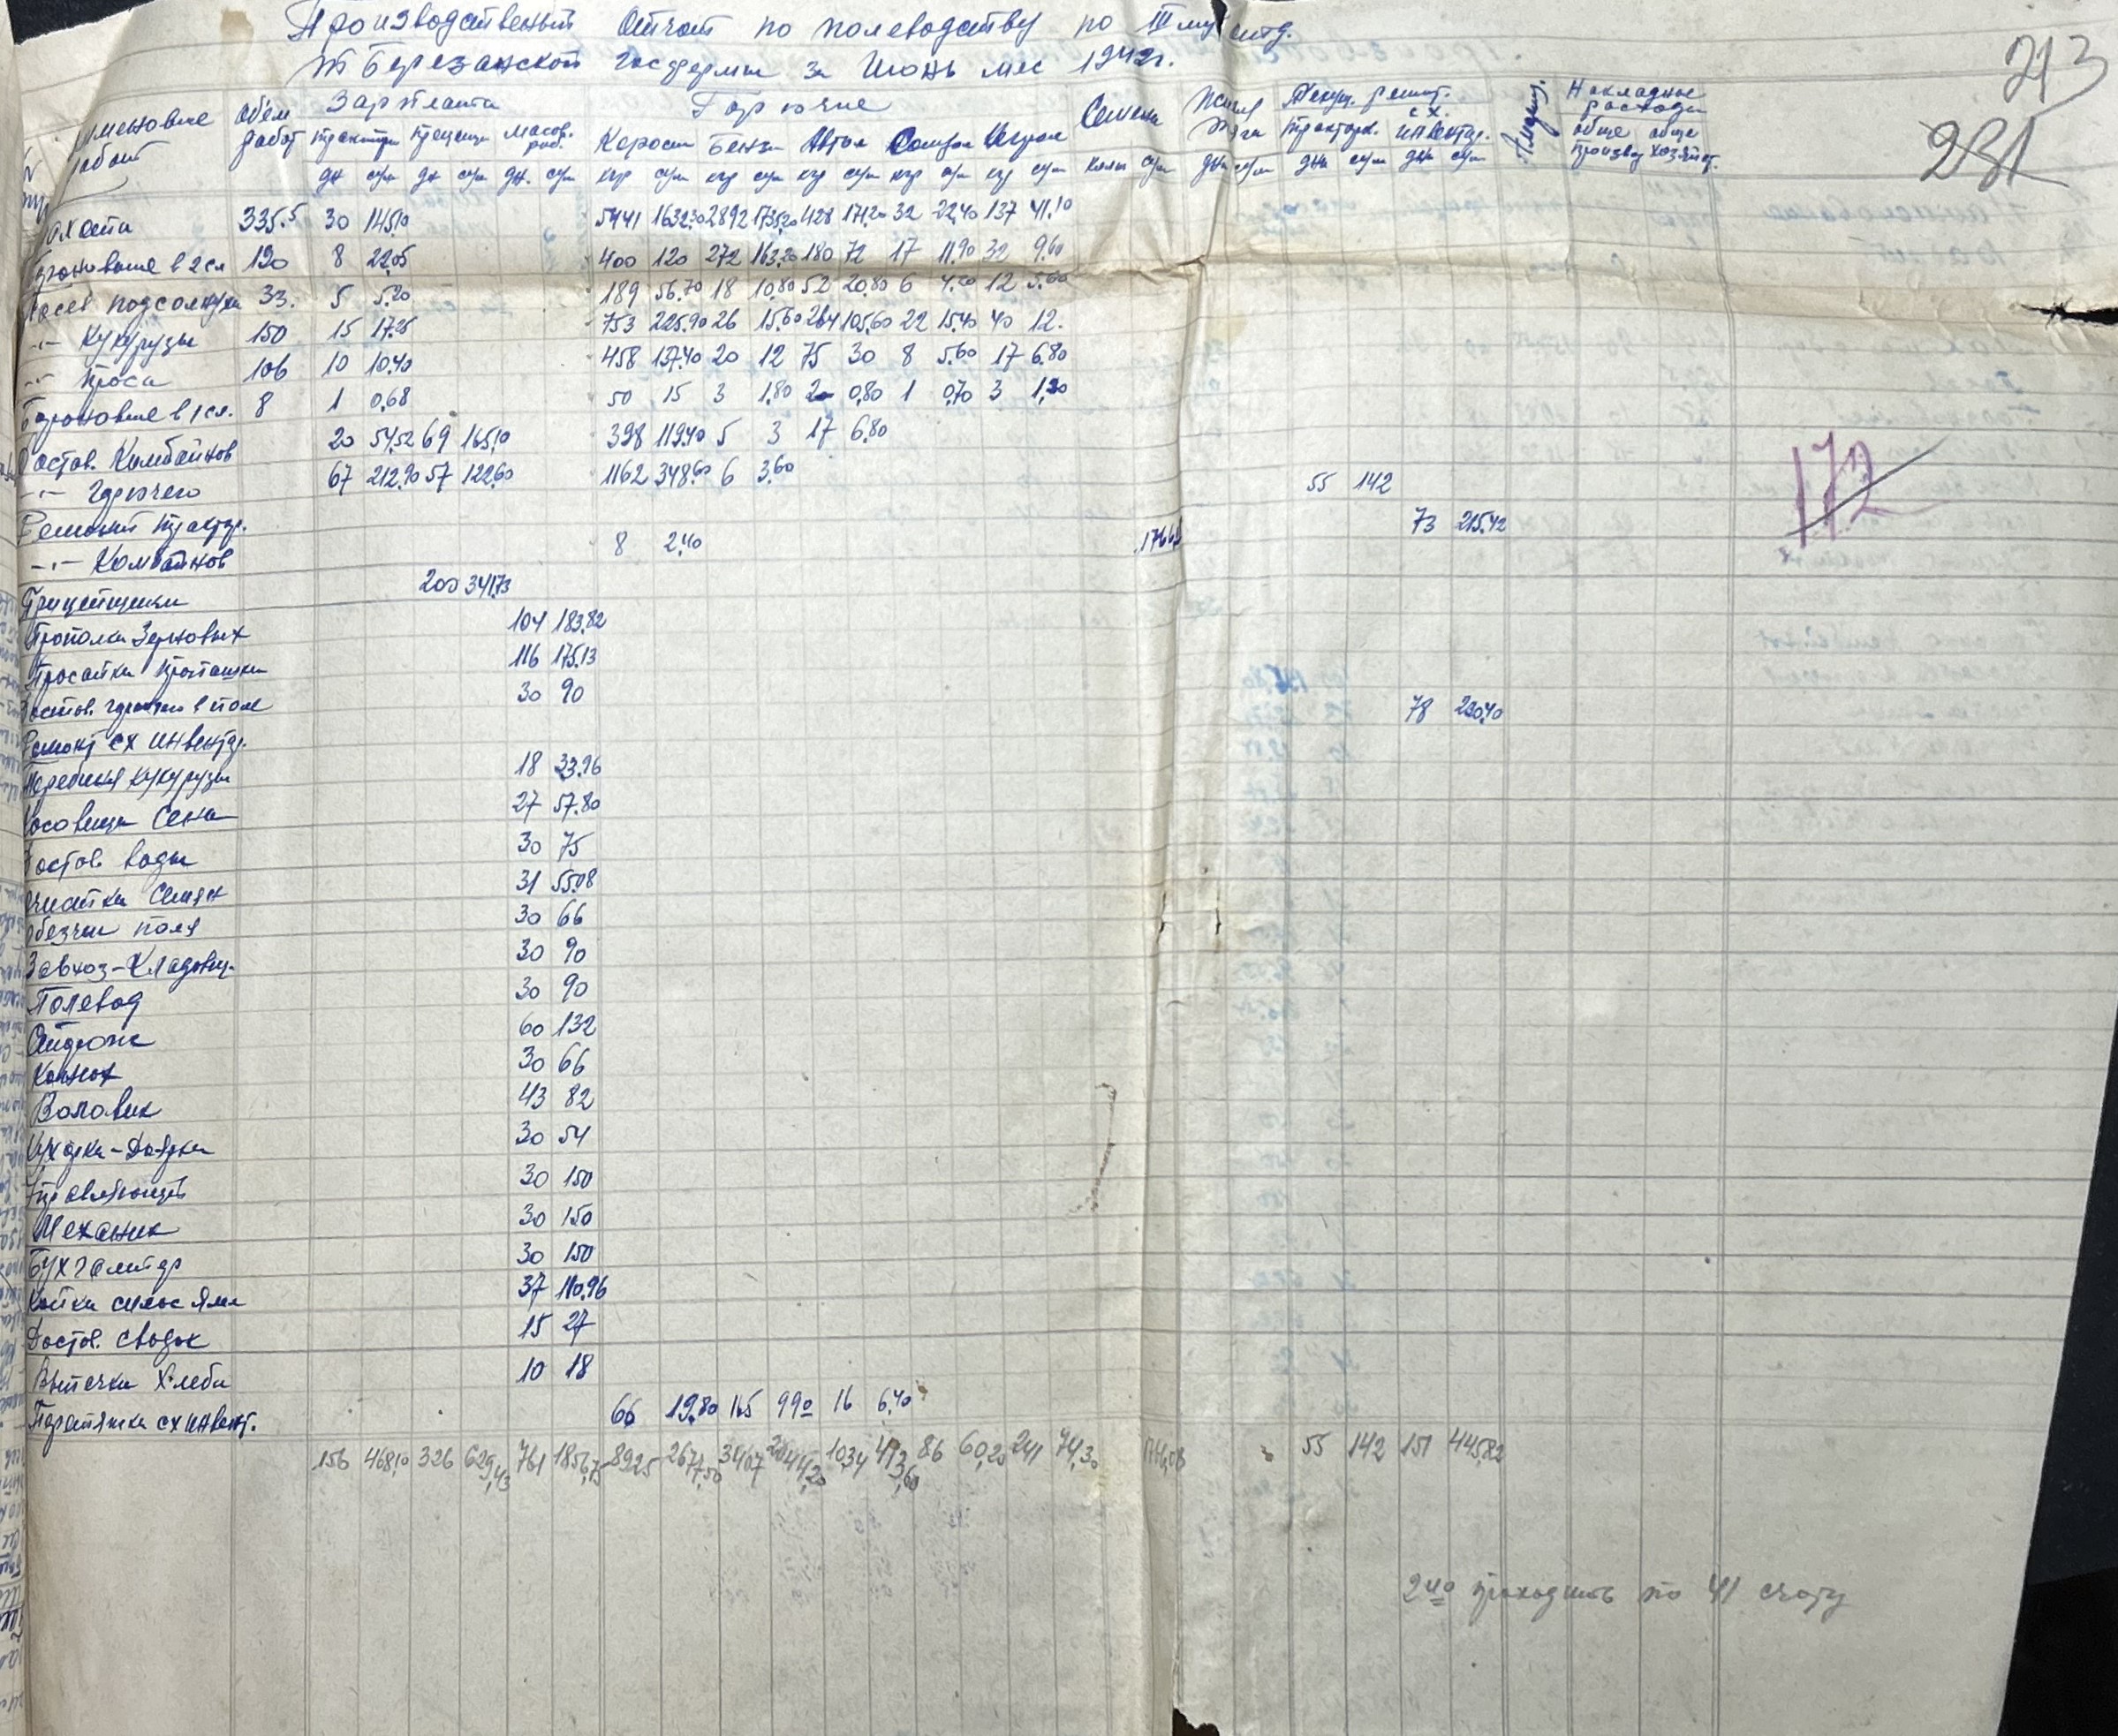 Производственый Отчот по полеводству по III му отд.
Березанской Госфермы за Июнь мес 1942г.
213
231
172
именование работ Об'ем работ Зарплата Горючие Семена Живая Тяга Текущ. ремнт. Накладные расходы
трактор. прецепщ. массов. раб. Кероси Бензи Автол Солидол Нигрол тракторн. с.х. инвентар. обще произвд обще хозяйст.
дн сум дн сум дн. сум кгр сум кгр сум кгр сум кгр сум кгр сум колич сум дни сум дни сум дни сум
ахота 335.5 30 145,10 5441 1632.30 2892 1735,20 428 171,20 32 22,40 137 41.10
Боронование в 2 сл 190 8 22,05 400 120 272 163,20 180 72 17 11.90 32 9.60
Посев подсолнуха 33. 5 5.20 189 56.70 18 10.80 52 20.80 6 4.20 12 3.60
-"- Кукурузы 150 15 17.25 753 225.90 26 15.60 264 105.60 22 15.40 40 12.
-"- Проса 106 10 10.40 458 137.40 20 12 75 30 8 5.60 17 6.80
Боронование в 1 сл. 8 1 0,68 50 15 3 1.80 2 0,80 1 0,70 3 1,20
Достав. Комбайнов 20 54,52 69 165,10 398 119.40 5 3 17 6.80
-"- Горючего 67 212.90 57 122,60 1162 348.60 6 3.60
Ремонт трактор. 55 142
-"- Комбайнов 8 2,40 73 215.42
Прицепщики 200 341.73
Прополка Зерновых 104 183.82
Просапка Пропашн 116 175.13
Достав. горючего в поле 30 90
Ремонт сх инвентар. 78 230,40
Переборка кукурузы 18 33.96
Косовица Сена 27 57.80
Достав воды 30 75
Очистка Семян 31 55.08
Обезчик поля 30 66
Завхоз-Кладовщ. 30 90
Полевод 30 90
Сторож 60 132
Конюх 30 66
Воловик 43 82
Кухарка-Доярка 30 54
Управляющий 30 150
Механик 30 150
Бухгалтер 30 150
Копка силос Ямы 37 110.96
Достав. сводок 15 27
Выпечка Хлеба 10 18
Перетяжка сх инвент. 66 19.80 165 99 16 6.40
156 468,10 326 629,43 761 1856,75 8925 2677,50 3407 2044,20 1034 413,60 86 60,20 241 74,30 55 142 151 445,82
проходить по 41 счоту